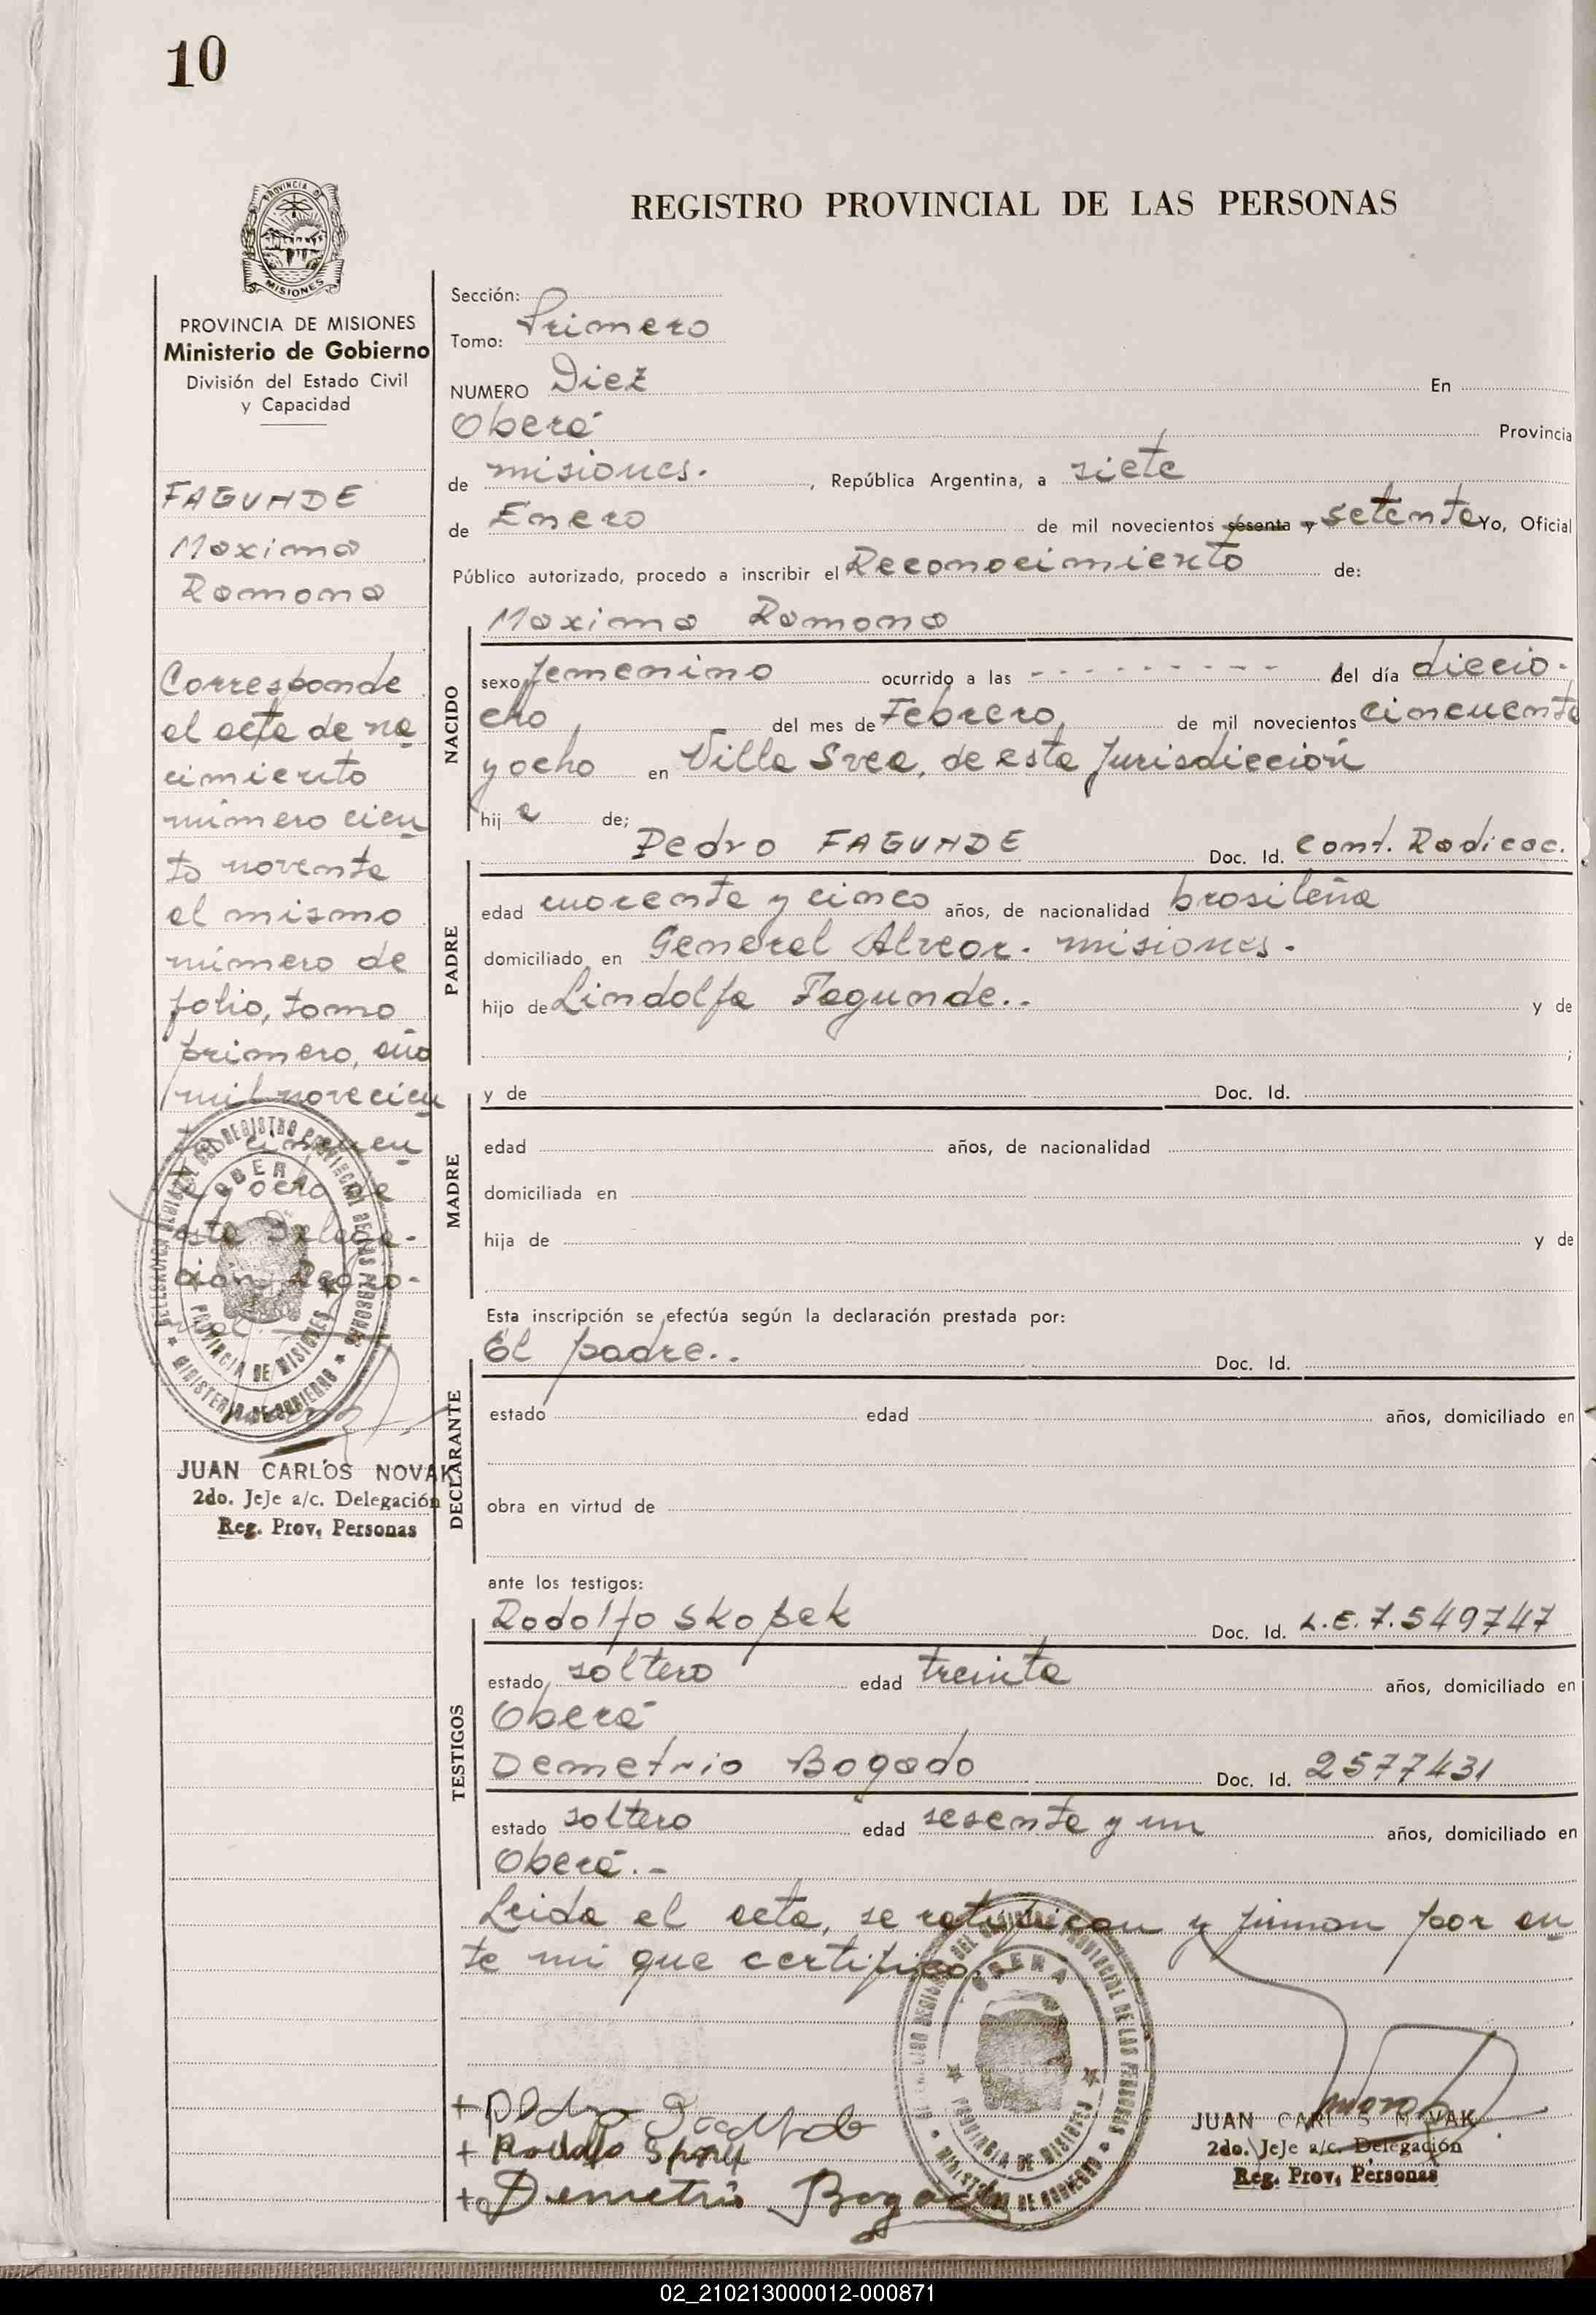 10
PROVINCIA DE
MISIONES
REGISTRO PROVINCIAL DE LAS PERSONAS
PROVINCIA DE MISIONES
Ministerio de Gobierno
División del Estado Civil
y Capacidad
FAGUNDE
Maxima
Ramona
Corresponde
al acta de na
cimiento
número cien
to noventa
al mismo
número de
folio, tomo
primero, año
mil novecien
tos cincuen
ta y ocho de
esta Delega-
ción Regio-
nal.
JUAN CARLOS NOVAK
2do. JeJe a/c. Delegación
Reg. Prov. Personas
Sección:
Tomo: Primero
NUMERO Diez En
Oberá Provincia
de misiones. , República Argentina, a siete
de Enero de mil novecientos sesenta y setenta Yo, Oficial
Público autorizado, procedo a inscribir el Reconocimiento de:
Maxima Ramona
NACIDO
sexo femenino ocurrido a las - - - - - - - - - del día diecio-
cho del mes de Febrero, de mil novecientos cincuenta
y ocho en Villa Svea, de esta Jurisdicción
hij a de;
PADRE
Pedro FAGUNDE Doc. Id. Cont. Radicac.
edad cuarenta y cinco años, de nacionalidad brasileña
domiciliado en General Alvear. misiones.
hijo de Lindolfa Fagunde.. y de
;
MADRE
y de Doc. Id.
edad años, de nacionalidad
domiciliada en
hija de y de
Esta inscripción se efectúa según la declaración prestada por:
DECLARANTE
El padre.. Doc. Id.
estado edad años, domiciliado en
obra en virtud de
ante los testigos:
TESTIGOS
Rodolfo Skopek Doc. Id. L.E. 7.549747
estado soltero edad treinta años, domiciliado en
Oberá
Demetrio Bogado Doc. Id. 2577431
estado soltero edad sesenta y un años, domiciliado en
Oberá.-
Leida el acta, se ratifican y firman por an
te mi que certifico.
OBERA
PROVINCIA DE MISIONES
MINISTERIO DE GOBIERNO
+ Pedro
+ Rodolfo
+ Demetrio Bogado
JUAN CARLOS NOVAK
2do. JeJe a/c. Delegación
Reg. Prov. Personas
02_210213000012-000871